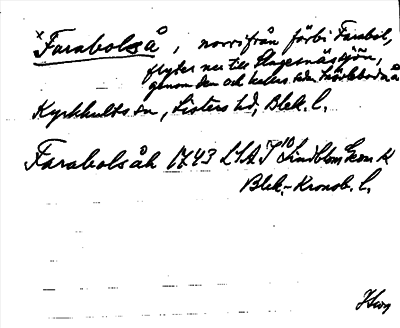 x Farabolså, norrifrån förbi Farabol,
flyter ner till Slagesnässjön,
genom den och kallas sedan
Kyrkhults sn, Listers hd, Blek. l.
Farabolsåk 1743 LSA Lindblom Geom. K
Blek.-Kronob. l.